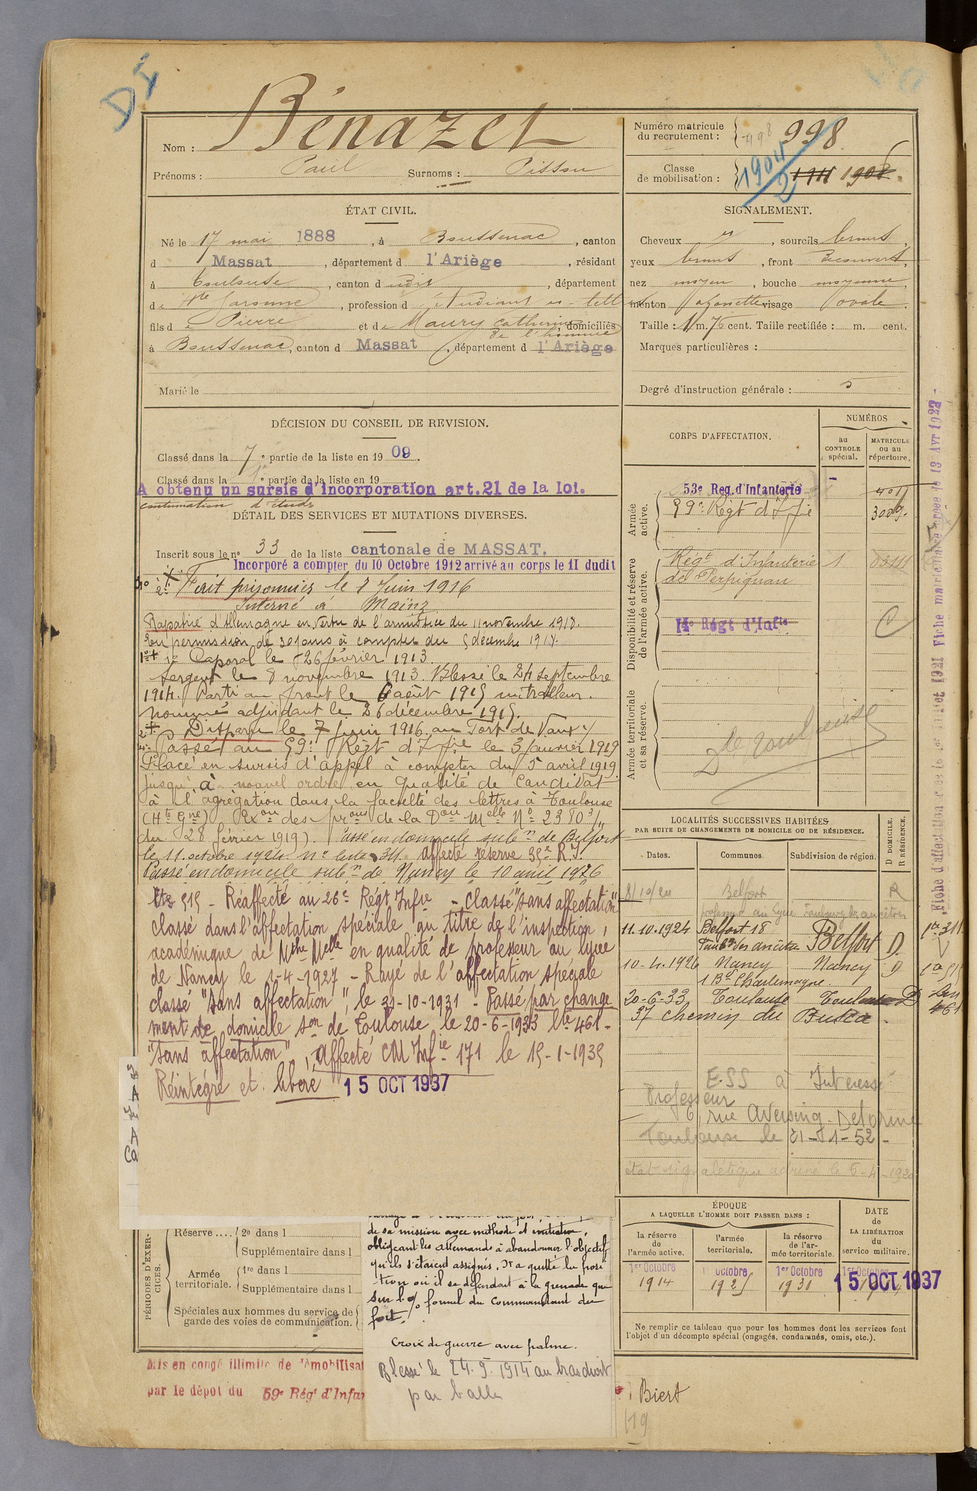 DI
Nom : Bénazet
Prénoms : Paul Surnoms : Pisson
Numéro matricule du recrutement : 998
Classe de mobilisation : 1904 1911 1908
ÉTAT CIVIL.
Né le 17 mai 1888, à Boussenac, canton
d Massat, département d l'Ariège, résidant
à Toulouse, canton d udit, département
de Hte Garonne, profession d étudiant ès-lett
fils de Pierre et de Maury Catherine domiciliés
à Boussenac, canton d Massat, département d l'Ariège
Marié le
SIGNALEMENT.
Cheveux , sourcils bruns,
yeux bruns, front découvert,
nez moyen, bouche moyenne,
menton fossette visage ovale.
Taille : 1 m. 76 cent. Taille rectifiée : m. cent.
Marques particulières :
Degré d'instruction générale : 5
DÉCISION DU CONSEIL DE REVISION.
Classé dans la 7e partie de la liste en 1909.
Classé dans la 1e partie de la liste en 19
A obtenu un sursis d'incorporation art. 21 de la loi.
continuation d'études
DÉTAIL DES SERVICES ET MUTATIONS DIVERSES.
Inscrit sous le no 33 de la liste cantonale de MASSAT.
Incorporé a compter du 10 Octobre 1912 arrivé au corps le 11 dudit
Fait prisonnier le 8 Juin 1916
Interné à Mainz
Rapatrié d'Allemagne en vertu de l'armistice du 11 novembre 1918.
En permission de 30 jours à compter du 5 décembre 1918.
Caporal le 26 février 1913.
Sergent le 8 novembre 1913. Blessé le 24 septembre
1914. Parti au front le 6 août 1915 mitrailleur.
Nommé adjudant le 26 décembre 1915
Disparu le 7 Juin 1916 au Fort de Vaux
Passé au 59e Régt d'Infie le 3 Janvier 1919
Placé en sursis d'appel à compter du 5 avril 1919
jusqu'à nouvel ordre en qualité de candidat
à l'agrégation dans la faculté des lettres à Toulouse
(Hte Gne)
du 28 février 1919). Passé en domicile subn de Belfort
le 11 octobre 1924 no liste 311. Affecté réserve 35e R.I.
Passé en domicile subn de Nancy le 10 avril 1926
lte 515 - Réaffecté au 26e Régt Infie - Classé "sans affectation"
classé dans l'affectation spéciale au titre de l'inspection,
académique de Mthe Mlle en qualité de professeur au lycée
de Nancy le 1-4-1927 - Rayé de l'affectation spéciale
classé "sans affectation", le 30-10-1931 - Passé par change
ment de domicile son de Toulouse, le 20-6-1933 lte 461 -
"Sans affectation", Affecté CM Infie 171 le 15-1-1935
Réintégré et libéré 15 OCT 1937
CORPS D'AFFECTATION.
NUMÉROS
au CONTROLE spécial.
MATRICULE ou au répertoire.
Armée active.
53e Reg. d'Infanterie
59e Régt d'Infie
Disponibilité et réserve de l'armée active.
Régt d'Infanterie 1
de Perpignan
14e Régt d'Infie
Armée territoriale et sa réserve.
De Toulouse
LOCALITÉS SUCCESSIVES HABITÉES
PAR SUITE DE CHANGEMENTS DE DOMICILE OU DE RÉSIDENCE.
Dates. Communes. Subdivision de région.
D DOMICILE. R RÉSIDENCE.
Belfort R
professeur au lycée
11.10.1924 Belfort 18 Belfort D
10-4-1926 Nancy Nancy D
1 Bd Charlemagne
20-6-33 Toulouse Toulouse D
37 chemin du Busca
ESS à Intéressé
Professeur
6, rue Aversing-Delorme
Toulouse le 21-11-52-
Fiche d'affectation
PÉRIODES D'EXERCICES.
Réserve .... 2e dans l
Supplémentaire dans l
Armée territoriale. 1re dans l
Supplémentaire dans l
Spéciales aux hommes du service de garde des voies de communication.
de sa mission avec méthode et initiative,
obligeant les allemands à abandonner l'objectif
qu'ils s'étaient assignés. N'a quitté la posi-
tion où il se défendait à la grenade que
sur l'o/ formel du commandant du
fort./.
Croix de guerre avec palme.
Blessé le 24.9.1914 au bras droit
par balle
ÉPOQUE
A LAQUELLE L'HOMME DOIT PASSER DANS :
la réserve de l'armée active.
l'armée territoriale.
la réserve de l'armée territoriale.
DATE de LA LIBÉRATION du service militaire.
1er Octobre 1914
Octobre 1925
1er Octobre 1931
15 OCT 1937
Ne remplir ce tableau que pour les hommes dont les services font l'objet d'un décompte spécial (engagés, condamnés, omis, etc.).
Mis en congé illimité de démobilisat
par le dépot du 59e Régt d'Infan
Biert